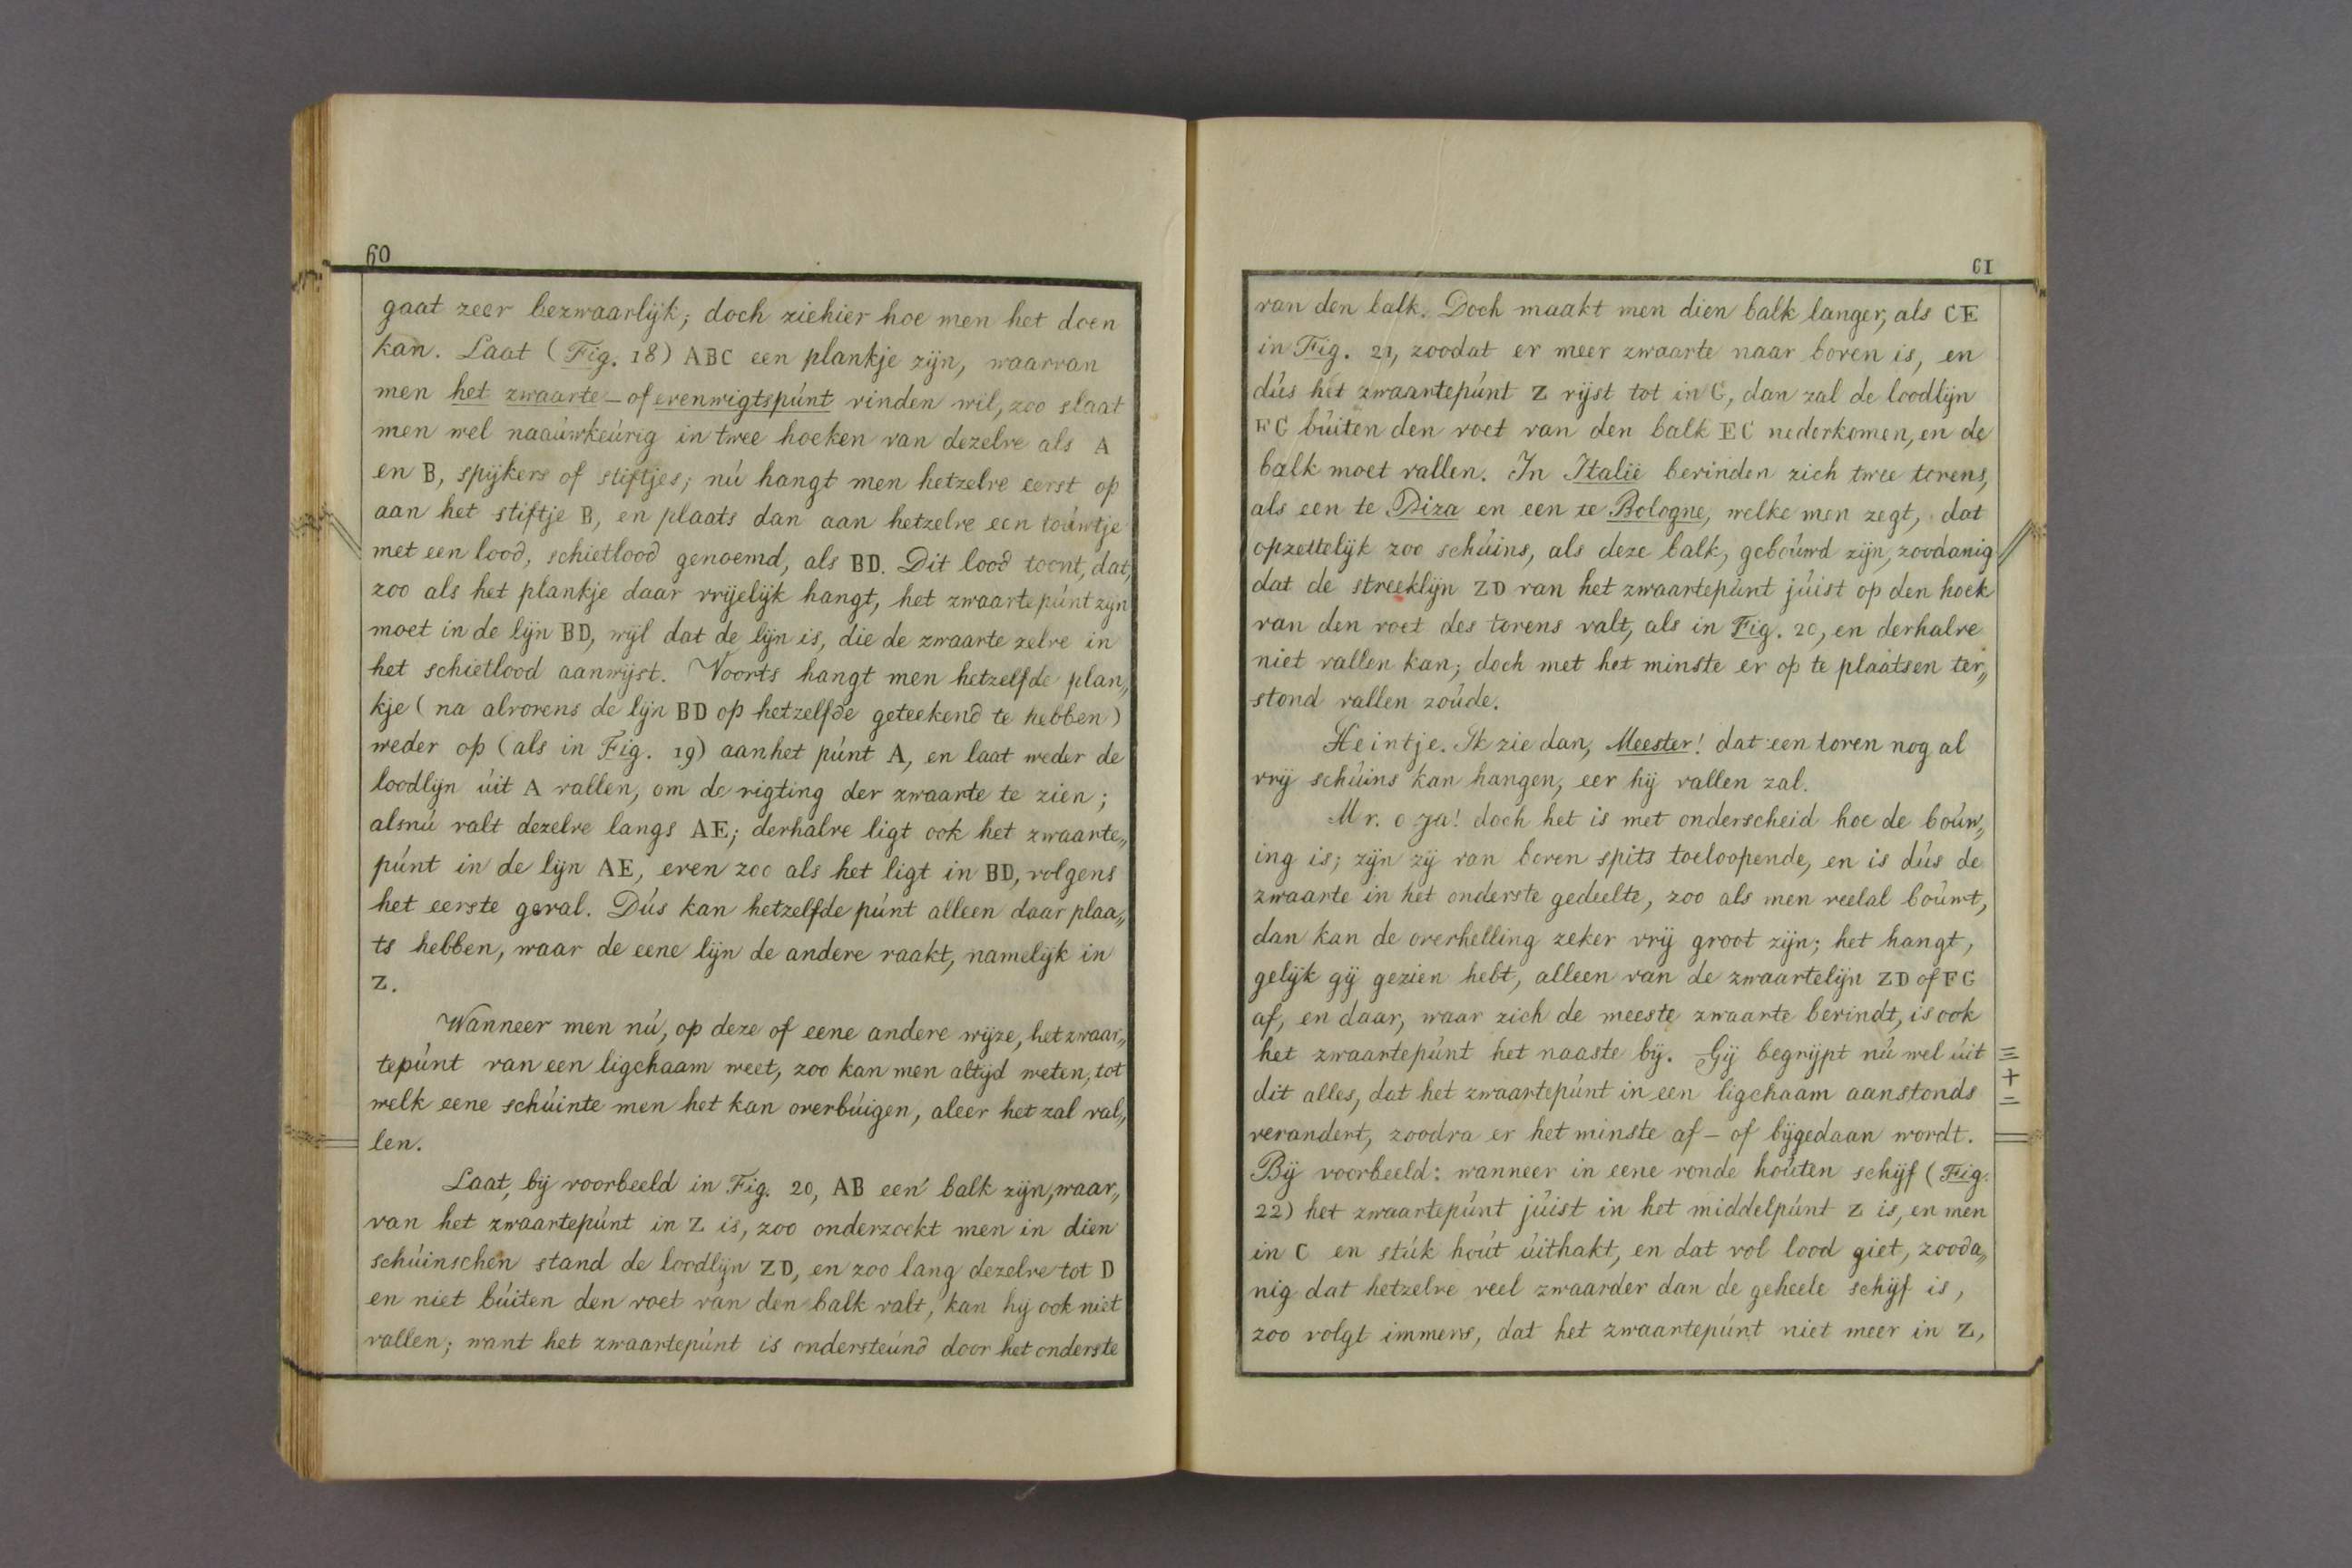 60
gaat zeer bezwaarlijk; doch ziehier hoe men het doen
kan. Laat (Fig. 18) ABC een plankje zijn, waarvan
men het zwaarte- of evenwigtspúnt vinden wil, zoo slaat
men wel naaúwkeúrig in twee hoeken van dezelve als A
en B, spijkers of stiftjes; nú hangt men hetzelve eerst op
aan het stiftje B, en plaats dan aan hetzelve een toúwtje
met een lood, schietlood genoemd, als BD. Dit lood toont, dat,
zoo als het plankje daar vrijelijk hangt, het zwaartepúnt zijn
moet in de lijn BD, wijl dat de lijn is, die de zwaarte zelve in
het schietlood aanwijst. Voorts hangt men hetzelfde plan„
kje (na alvorens de lijn BD op hetzelfde geteekend te hebben)
weder op (als in Fig. 19) aan het púnt A, en laat weder de
loodlijn úit A vallen, om de rigting der zwaarte te zien;
alsnú valt dezelve langs AE; derhalve ligt ook het zwaarte„
púnt in de lijn AE, even zoo als het ligt in BD, volgens
het eerste geval. Dús kan hetzelfde púnt alleen daar plaa„
ts hebben, waar de eene lijn de andere raakt, namelijk in
Z.
Wanneer men nú, op deze of eene andere wijze, het zwaar„
tepúnt van een ligchaam weet, zoo kan men altijd weten, tot
welk eene schúinte men het kan overbúigen, aleer het zal val„
len.
Laat, bij voorbeeld in Fig. 20, AB een balk zijn, waar„
van het zwaartepúnt in Z is, zoo onderzoekt men in dien
schúinschen stand de loodlijn ZD, en zoo lang dezelve tot D
en niet búiten den voet van den balk valt, kan hij ook niet
vallen; want het zwaartepúnt is ondersteúnd door het onderste
61
van den balk. Doch maakt men dien balk langer, als CE
in Fig. 21, zoodat er meer zwaarte naar boven is, en
dús het zwaartepúnt Z rijst tot in G, dan zal de loodlijn
FG búiten den voet van den balk EC nederkomen, en de
balk moet vallen. In Italië bevinden zich twee torens,
als een te Piza en een te Bologne, welke men zegt, dat
opzettelijk zoo schúins, als deze balk, geboúwd zijn, zoodanig
dat de streeklijn ZD van het zwaartepúnt júist op den hoek
van den voet des torens valt, als in Fig. 20, en derhalve
niet vallen kan; doch met het minste er op te plaatsen ter„
stond vallen zoúde.
Heintje. Ik zie dan, Meester! dat een toren nog al
vrij schúins kan hangen, eer hij vallen zal.
Mr. o ja! doch het is met onderscheid hoe de boúw„
ing is; zijn zij van boven spits toeloopende, en is dús de
zwaarte in het onderste gedeelte, zoo als men veelal boúwt,
dan kan de overhelling zeker vrij groot zijn; het hangt,
gelijk gij gezien hebt, alleen van de zwaartelijn ZD of FG
af, en daar, waar zich de meeste zwaarte bevindt, is ook
het zwaartepúnt het naaste bij. Gij begrijpt nú wel úit
dit alles, dat het zwaartepúnt in een ligchaam aanstonds
verandert, zoodra er het minste af- of bijgedaan wordt.
Bij voorbeeld: wanneer in eene ronde hoúten schijf (Fig.
22) het zwaartepúnt júist in het middelpúnt Z is, en men
in C en stúk hoút úithakt, en dat vol lood giet, zooda„
nig dat hetzelve veel zwaarder dan de geheele schijf is,
zoo volgt immers, dat het zwaartepúnt niet meer in Z,